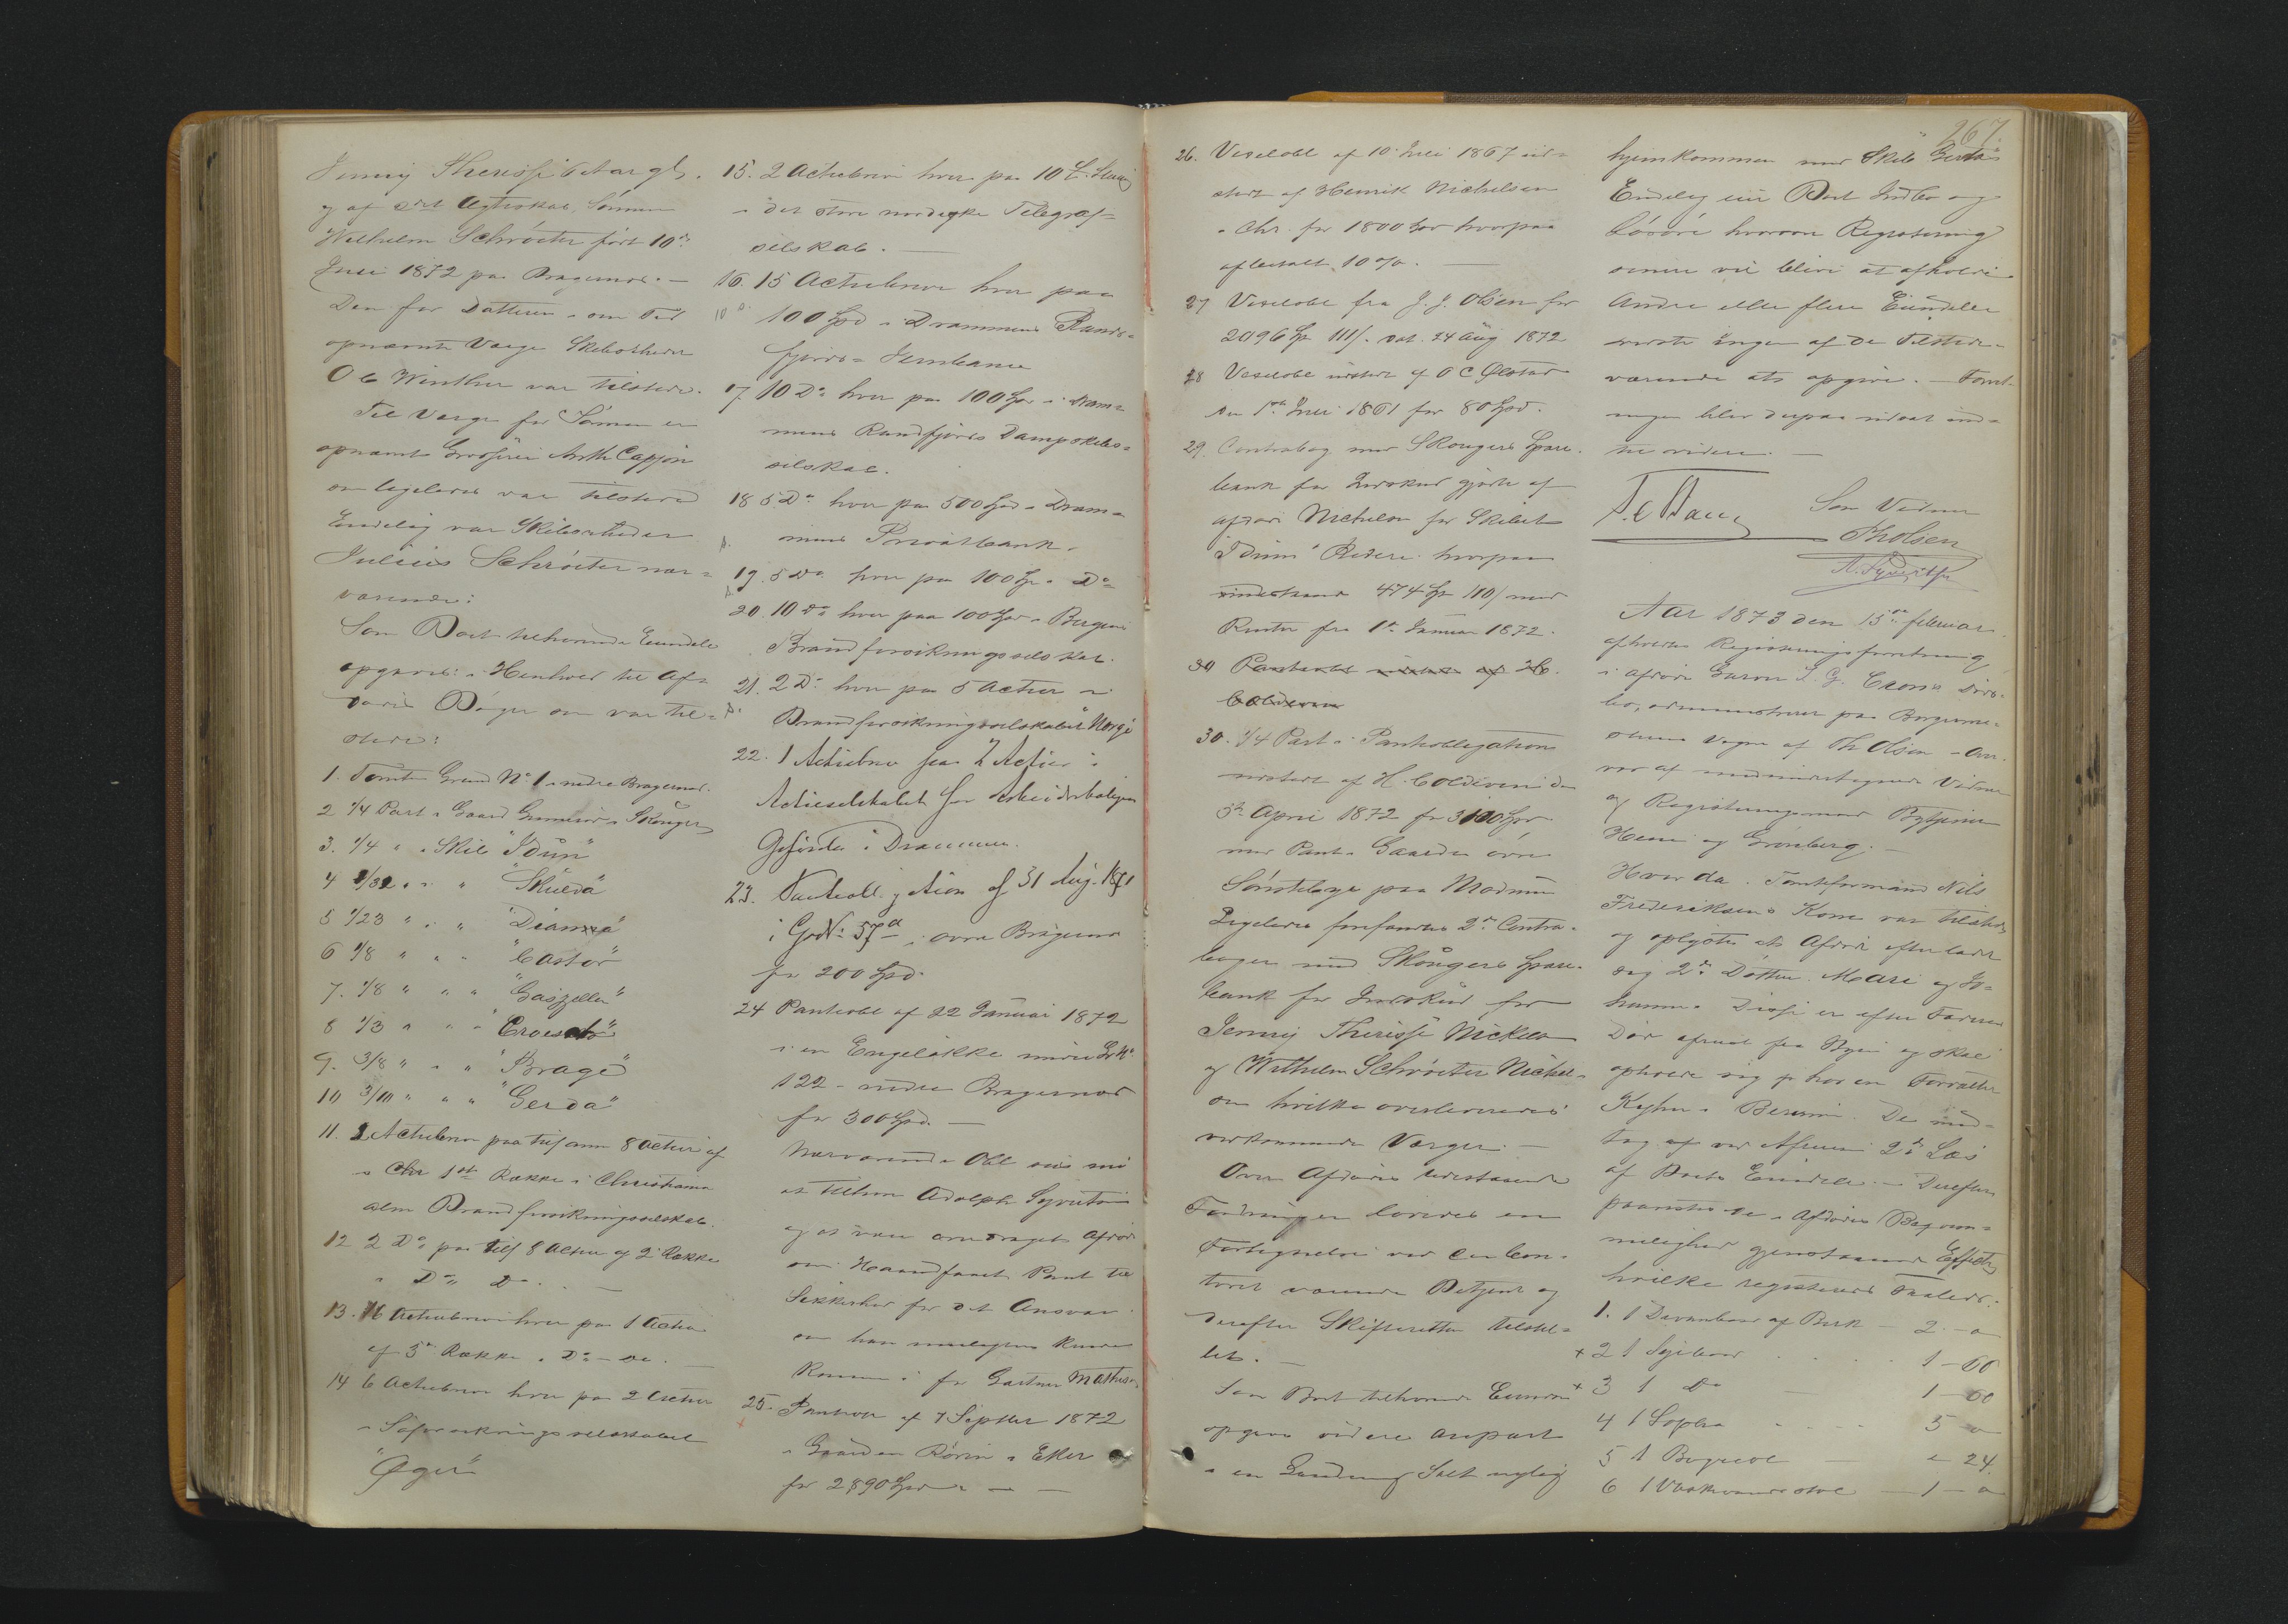 Jenny Theresse 6 Aar gl.
og af 2det Ægteskab, Sønnen
Wilhelm Schröeter født 10de
Juni 1872 paa Bragernes. —
Den for Datteren
opnævnte Værge Skibsrheder
Ole Winther var tilstede.
Til Værge for Sønnen er
opnævnt Grosserer Anth Cappon
som ligeledes var tilstede
Endelig var Skibsrheder
Julius Schröeter nær=
værende:
Som Boet tilhørende Eiendele
opgaves: i Henhold til Af=
dødes Bøger som var til=
stede:
1. Tomten Grund No 1 i nedre Bragernes.
2 1/4 Part i Gaard i Skouger
3. 1/4 " i Skib "Idun"
4 2/32 " " " "Skulda"
5 1/23 " " " "Diana"
6 1/8 " " " "Castor"
7. 1/8 " " " "Gazzellen"
8 1/3 " " "
9. 3/8 " " " "Brage"
10 3/10 " " " "Gerda"
11. 2 Actiebreve paa tilsammen 8 Actier af
1ste Række i Christiania
alm Brandforsikringsselskab.
12 2 Do paa tils 8 Actier af 2 Række
i Do Do. —
13. 16 Actiebreve hver paa 1 Actie
af 3de Række i Do - Do. —
14 6 Actiebreve hver paa 2 Actier
i Søforsikringsselskabet
"Øger"
15. 2 Actiebreve hver paa 10 £. Sterling
i det store nordiske Telegraf=
selskab. —
16. 15 Actiebreve hver paa
100 Spd i Drammens Rands=
fjords= Jernbane
17 10 Do hver paa 100 Spd i Dram=
mens Randfjords Dampskibs=
selskab.
18 5 Do hver paa 500 Spd i Dram=
mens Privatbank.
19. 5 Do hver paa 100 Sp i Do
20. 10 Do hver paa 100 Spd i Bergens
Brandforsikringsselskab.
21. 2 Do hver paa 5 Actier i
Brandforsikringsselskabet "Norge"
22. 1 Actiebrev paa 2 Actier i
Actieselskabet for Arbeiderboligers
Opførelse i Drammen.
23. Pantobligation af 31 Aug. 1871
i Gd No 57a i øvre Bragernes
for 200 Spd.
24 Pantobl af 22 Januar 1872
i en Engeløkke under Gr No
122 i nedre Bragernes
for 300 Spd. —
Nærværende Obl
at tilhøre Adolph Syvertsen
og at være overdraget Afdøde
som Haandfaaet Pant til
Sikkerhed for det Ansvar
som han muligens kunde
komme i for Gartner Mathisen
25. Pantobl af 7 September 1872
i Gaarden i Eker
for 2,890 Spd. — —
26. Vexelobl af 10 Juli 1867 ud=
stedt af Henrik Nichelsen
i Chr. for 1800 Spd hvorpaa
afbetalt 10 %. —
27 Vexelobl fra J. J. Olsen for
2096 Sp 111/. dat. 24 Aug 1872
28 Vexelobl udstedt af O C Ølstad
den 1ste Juli 1861 for 80 Spd.
29. Contrabog med Skougers Spare=
bank for Indskud gjorte af
afdøde Nickelsen for Skibet
"Idun" Rederi. hvorpaa
indestaaende 474 Sp 110/ med
Renter fra 1ste Januar 1872.
30 Pantobl udstedt af H.
Coldevin
30. 1/4 Part i Pantobligation
udstedt af H. Coldevin d
5te April 1872 for 3100 Spd.
med Pant i Gaarden øvre
paa Modum
Ligeledes forefandtes 2de Contra=
bøger med Skougers Spare=
bank for Indskud for
Jenny Theresse Nickelsen
og Wilhelm Schröeter Nickel=
sen hvilke overleveredes
vedkommende Værger. —
Over Afdødes udestaaende
Fordringer loves en
Fortegnelse ved Con=
toret værende Betjent og
derefter Skifteretten tilstil=
let. —
Som Boet tilhørende Eiendom
opgaves videre anpart
i en Ladning Salt nylig
267.
hjemkommen med Skib "Gerda"
Endelig eier Boet Indbo og
løsøre hvorover Registrering
senere vil blive at afholde
Andre eller flere Eiendele
vidste ingen af de tilstede=
værende at opgive. — Forret=
ningen blev derpaa udsat ind=
til videre. —
Som Vidner
Th Olsen
A. Syvertsen
Aar 1873 den 15de februar
afholdtes Registreringsforretning
i afdøde Døds=
bo, administreret paa Borgerme=
sterens Vegne af Th Olsen i Over=
vær af medundertegnede Vidner
og Registreringsmænd Bytjener
Heen og Grønberg. —
Hvor da Tomteformand Nils
Frederiksens Kone var tilstede
og oplyste at Afdøde efterlader
sig 2de Døttre Mari og Jo=
hanne. Disse er efter Faderens
Død afreist fra Byen og skal
opholde sig hos en Forvalter
i Bærum. De med=
tog af ved Afreisen 2de Læs
af Boets Eiendele. — Derefter
paavistes de i Afdødes Beqvem=
melighed gjenstaaende Effecter
hvilke registreredes saaledes:
1. 1 Divanbord af Birk — 2 - "
2 1 Sybord 1 - 60
3 1 Do — 1 - 60
4 1 Sopha 5 - "
5 1 Bogreol — " 24.
6 1 Vaskevandsstol — 1 - "